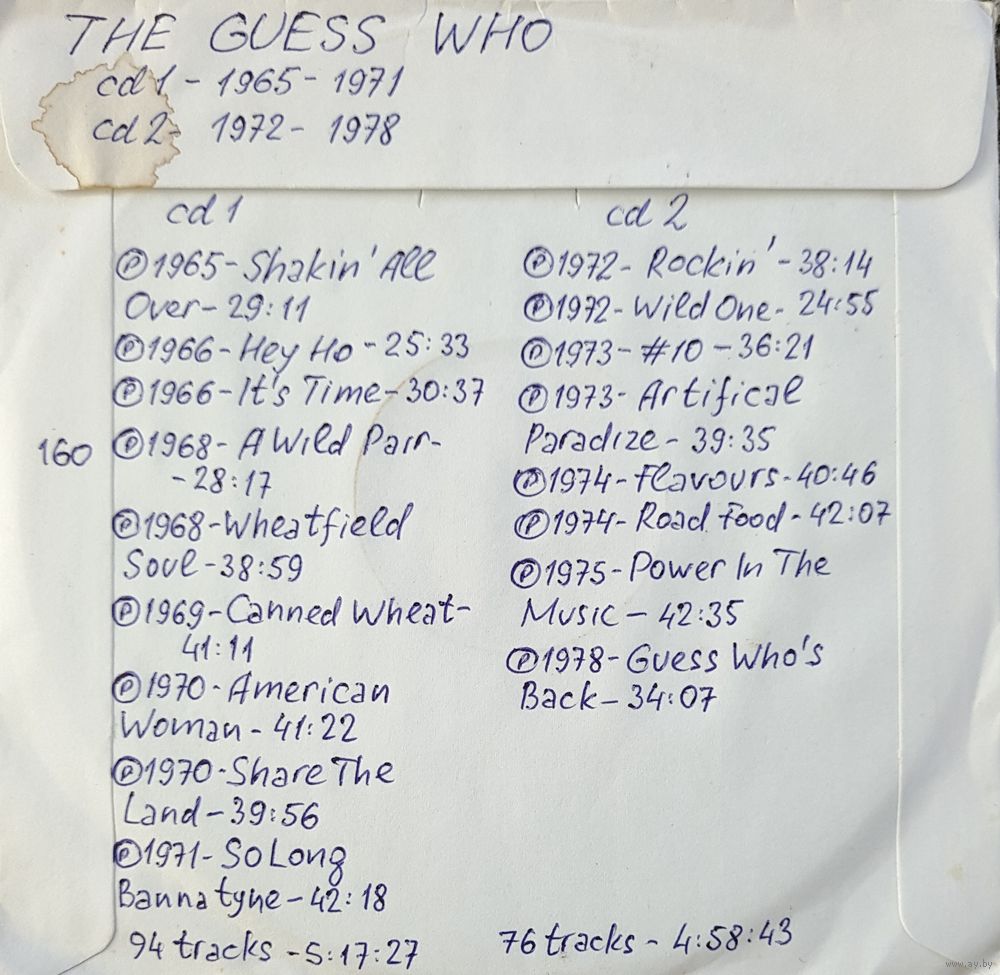 THE GUESS WHO
cd 1 - 1965 - 1971
cd 2 - 1972 - 1978
cd 1
Ⓟ1965 - Shakin' All
Over - 29:11
Ⓟ1966 - Hey Ho - 25:33
Ⓟ1966 - It's Time - 30:37
160
Ⓟ1968 - A Wild Pair -
- 28:17
Ⓟ1968 - Wheatfield
Soul - 38:59
Ⓟ1969 - Canned Wheat -
41:11
Ⓟ1970 - American
Woman - 41:22
Ⓟ1970 - Share The
Land - 39:56
Ⓟ1971 - So Long
Bannatyne - 42:18
94 tracks - 5:17:27
cd 2
Ⓟ1972 - Rockin' - 38:14
Ⓟ1972 - Wild One - 24:55
Ⓟ1973 - #10 - 36:21
Ⓟ1973 - Artifical
Paradize - 39:35
Ⓟ1974 - Flavours - 40:46
Ⓟ1974 - Road Food - 42:07
Ⓟ1975 - Power In The
Music - 42:35
Ⓟ1978 - Guess Who's
Back - 34:07
76 tracks - 4:58:43
www.ay.by